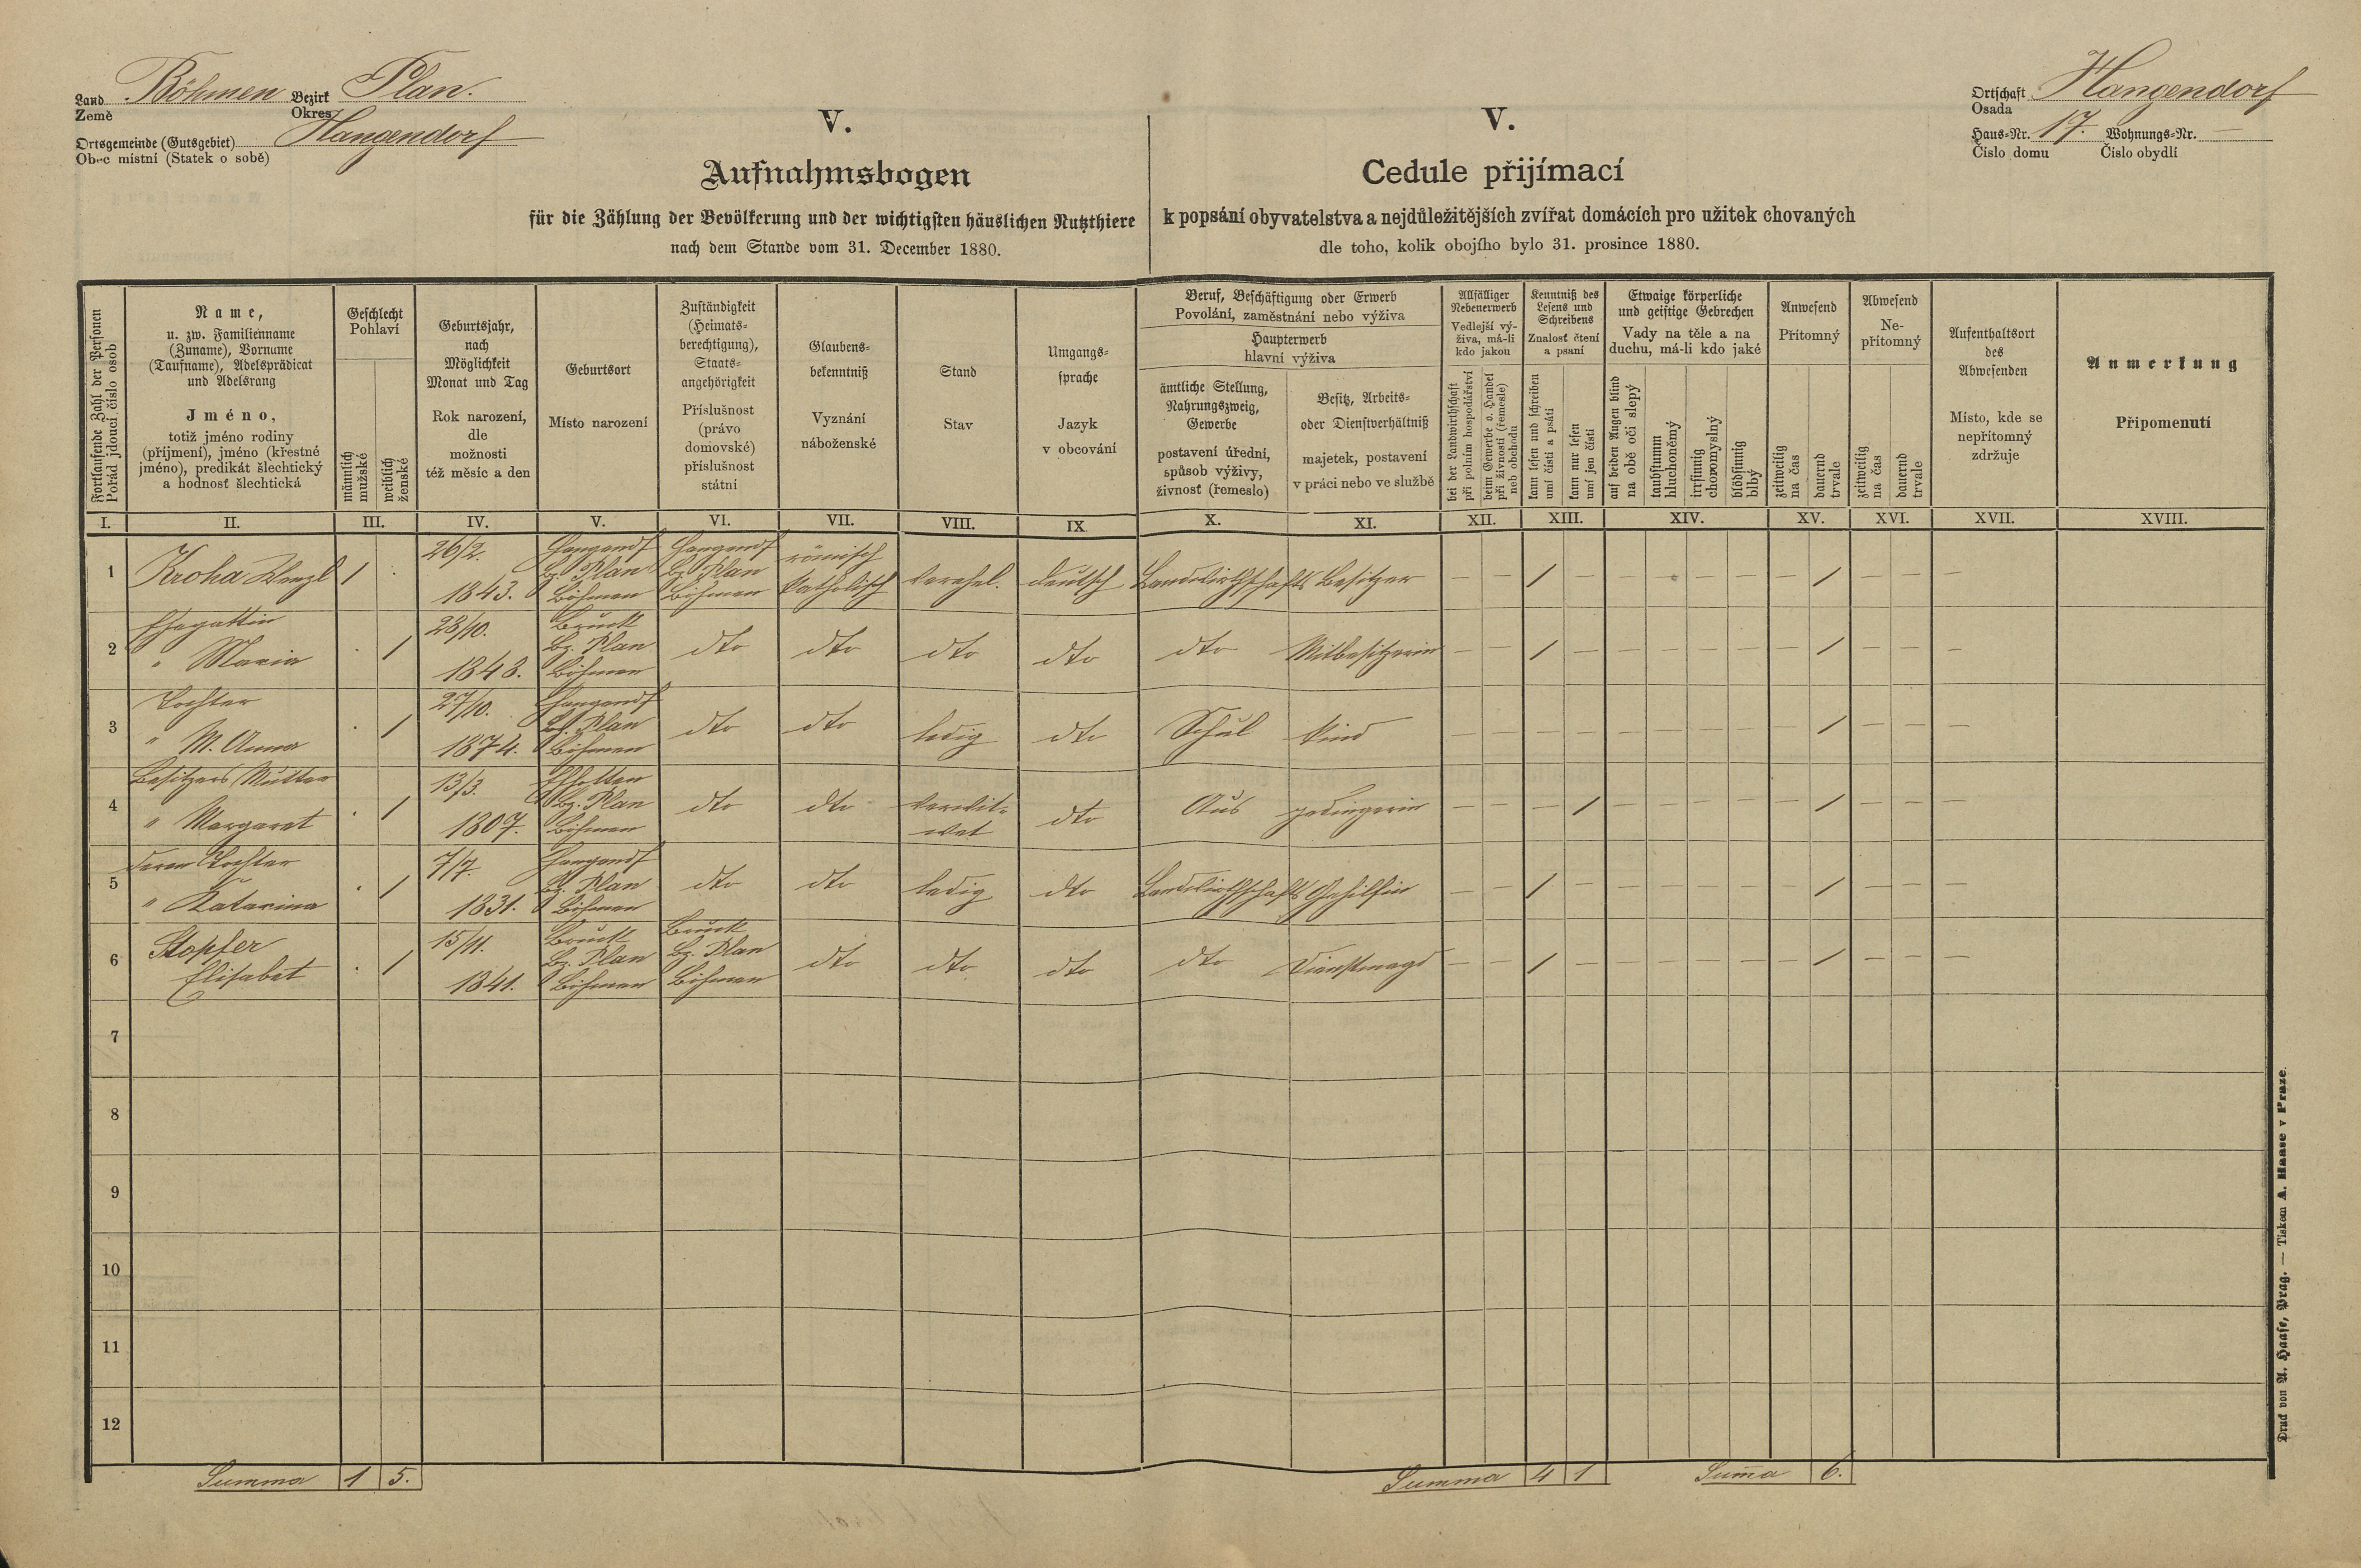 Land Böhmen Bezirk Plan.
Země Okres
Ortsgemeinde (Gutsgebiet) Hangendorf
Obec místní (Statek o sobě)
V.
Aufnahmsbogen
für die Zählung der Bevölkerung und der wichtigsten häuslichen Nutzthiere
nach dem Stande vom 31. December 1880.
V.
Cedule přijímací
k popsání obyvatelstva a nejdůležitějších zvířat domácích pro užitek chovaných
dle toho, kolik obojího bylo 31. prosince 1880.
Ortschaft Hangendorf
Osada
Haus-Nr. 17. Wohnungs-Nr. —
Číslo domu Číslo obydlí
Fortlaufende Zahl der Personen
Pořád jdoucí číslo osob
Name,
u. zw. Familienname
(Zuname), Vorname
(Taufname), Adelsprädicat
und Adelsrang
Jméno,
totiž jméno rodiny
(příjmení), jméno (křestné
jméno), predikát šlechtický
a hodnosť šlechtická
Geschlecht
Pohlaví
männlich
mužské
weiblich
ženské
Geburtsjahr,
nach
Möglichkeit
Monat und Tag
Rok narození,
dle
možnosti
též měsíc a den
Geburtsort
Místo narození
Zuständigkeit
(Heimats-
berechtigung),
Staats-
angehörigkeit
Příslušnost
(právo
domovské)
příslušnost
státní
Glaubens-
bekenntniß
Vyznání
náboženské
Stand
Stav
Umgangs-
sprache
Jazyk
v obcování
Beruf, Beschäftigung oder Erwerb
Povolání, zaměstnání nebo výživa
Haupterwerb
hlavní výživa
ämtliche Stellung,
Nahrungszweig,
Gewerbe
postavení úřední,
spůsob výživy,
živnosť (řemeslo)
Besitz, Arbeits-
oder Dienstverhältniß
majetek, postavení
v práci nebo ve službě
Allfälliger
Nebenerwerb
Vedlejší vý-
živa, má-li
kdo jakou
bei der Landwirthschaft
při polním hospodářství
beim Gewerbe o. Handel
při živnosti (řemesle)
neb obchodu
Kenntniß des
Lesens und
Schreibens
Znalosť čtení
a psaní
kann lesen und schreiben
umí čísti a psáti
kann nur lesen
umí jen čísti
Etwaige körperliche
und geistige Gebrechen
Vady na těle a na
duchu, má-li kdo jaké
auf beiden Augen blind
na obě oči slepý
taubstumm
hluchoněmý
irrsinnig
choromyslný
blödsinnig
blbý
Anwesend
Přítomný
zeitweilig
na čas
dauernd
trvale
Abwesend
Ne-
přítomný
zeitweilig
na čas
dauernd
trvale
Aufenthaltsort
des
Abwesenden
Místo, kde se
nepřítomný
zdržuje
Anmerkung
Připomenutí
I. II. III. IV. V. VI. VII. VIII. IX X. XI. XII. XIII. XIV. XV. XVI. XVII. XVIII.
1 Kroha Wenzl 1 . 26/2. 1843. Hangendf Bz. Plan Böhmen Hangendf Bz. Plan Böhmen römisch katholisch verehel. deutsch Landwirthschafts Besitzer — — / — — — — — — / — — —
2 Ehegattin " Maria . / 28/10. 1843. Bruck Bz. Plan Böhmen dto dto dto dto dto Mitbesitzerin — — / — — — — — — / — — —
3 Tochter " M. Anna . / 27/10. 1874. Hangendf Bz. Plan Böhmen dto dto ledig dto Schul kind — — — — — — — — — / — — —
4 Besitzers Mutter " Margaret . / 13/3. 1807. Bz. Plan Böhmen dto dto verwit= wet dto Aus gedingerin — — — / — — — — — / — — —
5 deren Tochter " Katarina . / 7/7. 1831. Hangendf Bz. Plan Böhmen dto dto ledig dto Landwirthschafts Gehilfin — — / — — — — — — / — — —
6 Stopfer Elisabet . / 15/11. 1841. Bruck Bz. Plan Böhmen Bruck Bz. Plan Böhmen dto dto dto dto Dienstmagd — — / — — — — — — / — — —
7
8
9
10
11
12
Summa 1 5.
Summa 4 1
Sum̄a 6.
Druck von A. Haase, Prag. — Tiskem A. Haase v Praze.